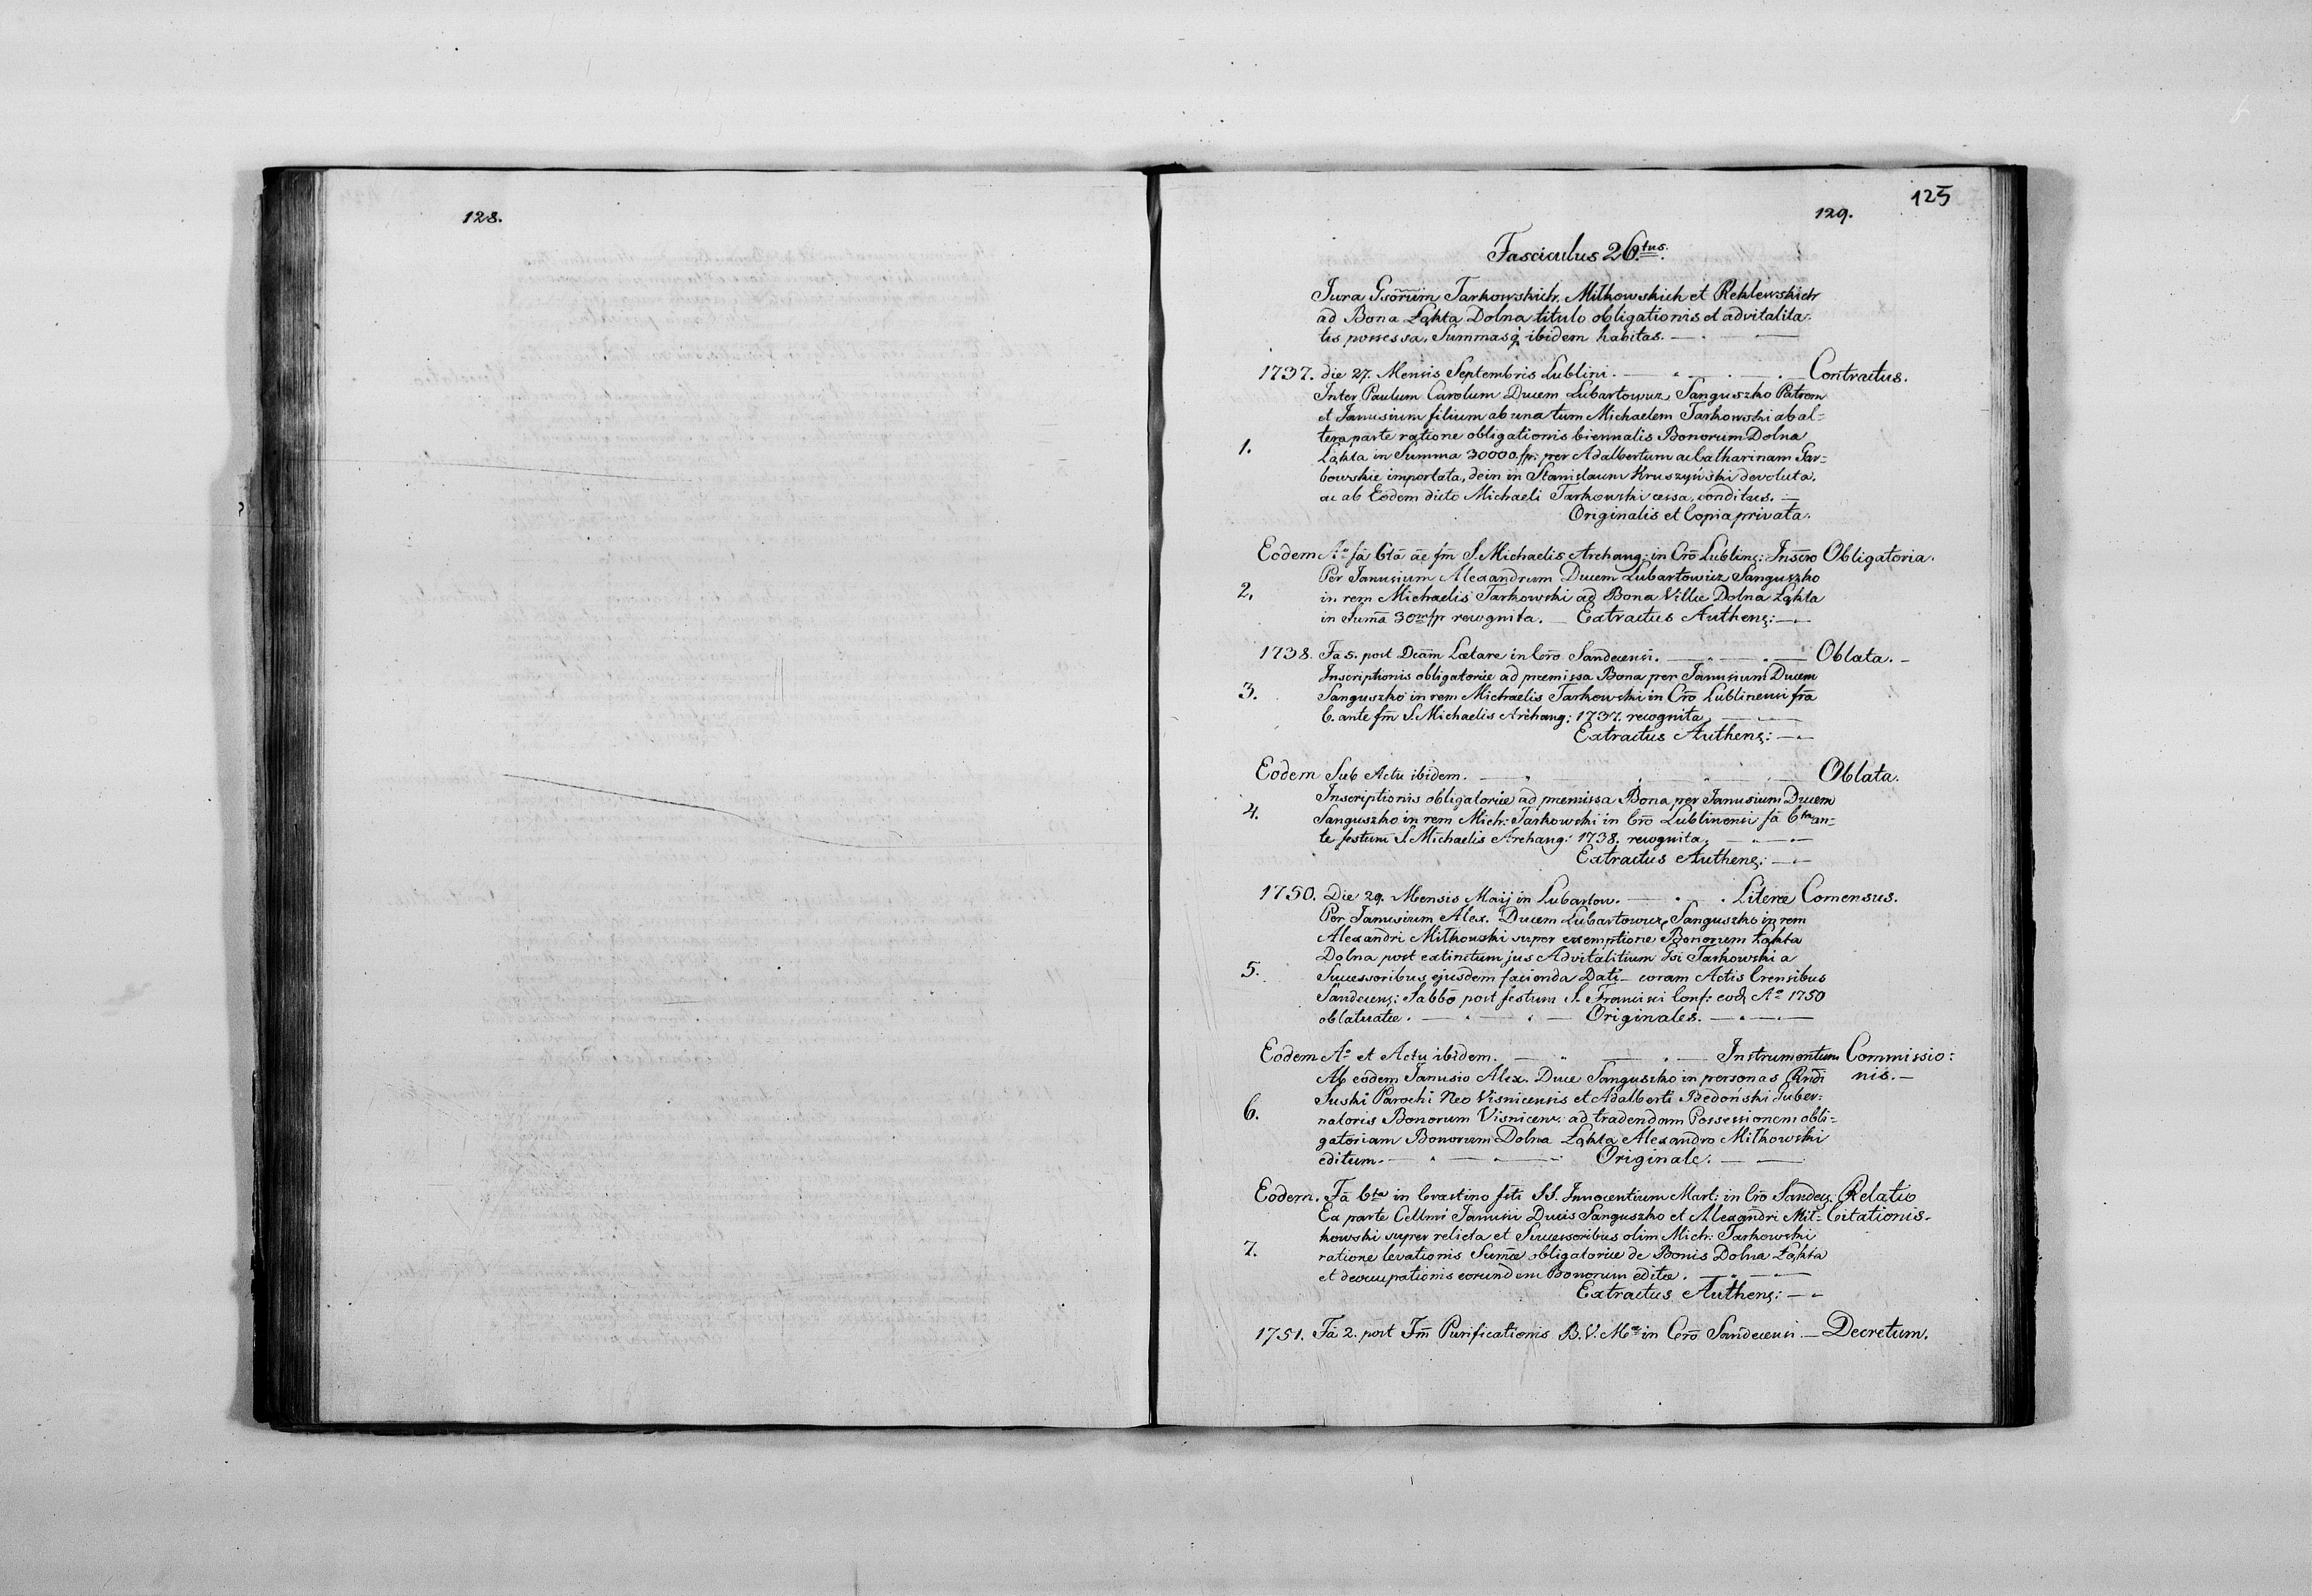 128.
125
129.
Fasciculus 26.tus.
Jura Gsorum Tarkowskich, Miłkowskich et Rehlewskich
ad Bona Łąkta Dolna titulo obligationis et advitalita-
tis possessa, Summasq ibidem habitas. —
1737. die 27. Mensis Septembris Lublini. — Contractus.
Inter Paulum Carolum Ducem Lubartowicz Sanguszko Patrem
et Janusium filium ab una tum Michaelem Tarkowski ab al=
1. tera parte ratione obligationis biennalis Bonorum Dolna
Łąkta in Summa 30000. fp: per Adalbertum ac Catharinam Gar=
bowskie importata, dein in Stanislaum Kruszyński devoluta,
ac ab Eodem dicto Michaeli Tarkowski cessa, conditus. —
Originalis et Copia privata.
Eodem Ao fã 6tã ãe fm̃ S. Michaelis Archang: in Crõ Lublinę: Inscro Obligatoria.
Per Janusium Alexandrum Ducem Lubartowicz Sanguszko
2. in rem Michaelis Tarkowski ad Bona Villæ Dolna Łąkta
in Sum̃a 30m fp recognita. — Extractus Authenę: —
1738. Fã 5. post Dcãm Lætare in Crõ Sandecensi. — Oblata. —
Inscriptionis obligatoriæ ad præmissa Bona per Janusium Ducem
3. Sanguszko in rem Michaelis Tarkowski in Crõ Lublinensi frã
6. ante fm̃ S. Michaelis Archang: 1737. recognita —
Extractus Authenę: —
Eodem Sub Actu ibidem. — Oblata.
Inscriptionis obligatoriæ ad præmissa Bona per Janusium Ducem
4. Sanguszko in rem Mich: Tarkowski in Crõ Lublinensi fã 6ta an=
te festum S. Michaelis Archang: 1738. recognita. —
Extractus Authenę: —
1750. Die 29. Mensis Maij in Lubartow. — Literæ Consensus.
Per Janusium Alex. Ducem Lubartowicz Sanguszko in rem
Alexandri Miłkowski super exemptione Bonorum Łąkta
Dolna post extinctum jus Advitalitium Gsi Tarkowski a
5. Successoribus ejusdem facienda Dati — coram Actis Crensibus
Sandecenę: Sabbõ post festum S. Francisci Conf: eod Ao 1750
oblatuatæ. — Originales. —
Eodem Ao et Actu ibidem. — Instrumentum Commissio:
Ab eodem Janusio Alex. Duce Sanguszko in personas Rndi nis. —
Suski Parochi Neo Visnicensis et Adalberti Bedoński Guber=
6. natoris Bonorum Visnicen: ad tradendam Possessionem obli=
gatoriam Bonorum Dolna Łąkta Alexandro Miłkowski
editum. — Originale. —
Eodem. Fã 6ta in Crastino fsti SS. Innocentium Mart: in Crõ Sandeę. Relatio
Ex parte Cellmi Janusii Ducis Sanguszko et Alexandri Mił= Citationis.
kowski super relicta et Successoribus olim Mich: Tarkowski
7. ratione levationis Sum̃æ obligatoriæ de Bonis Dolna Łąkta
et deoccupationis eorundem Bonorum editæ. —
Extractus Authenę: —
1751. Fã 2. post Fm̃ Purificationis B. V. Mæ in Crõ Sandecensi — Decretum.